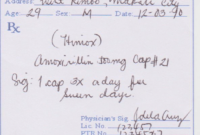 Address Makati City
Age 29 Sex M Date 12-03-90
Rx
(Himox)
Amoxicillin 500mg Cap #21
Sig: 1 cap 3x a day for
seven days
Physician's Sig
Lic. No. 123457
PTR No.